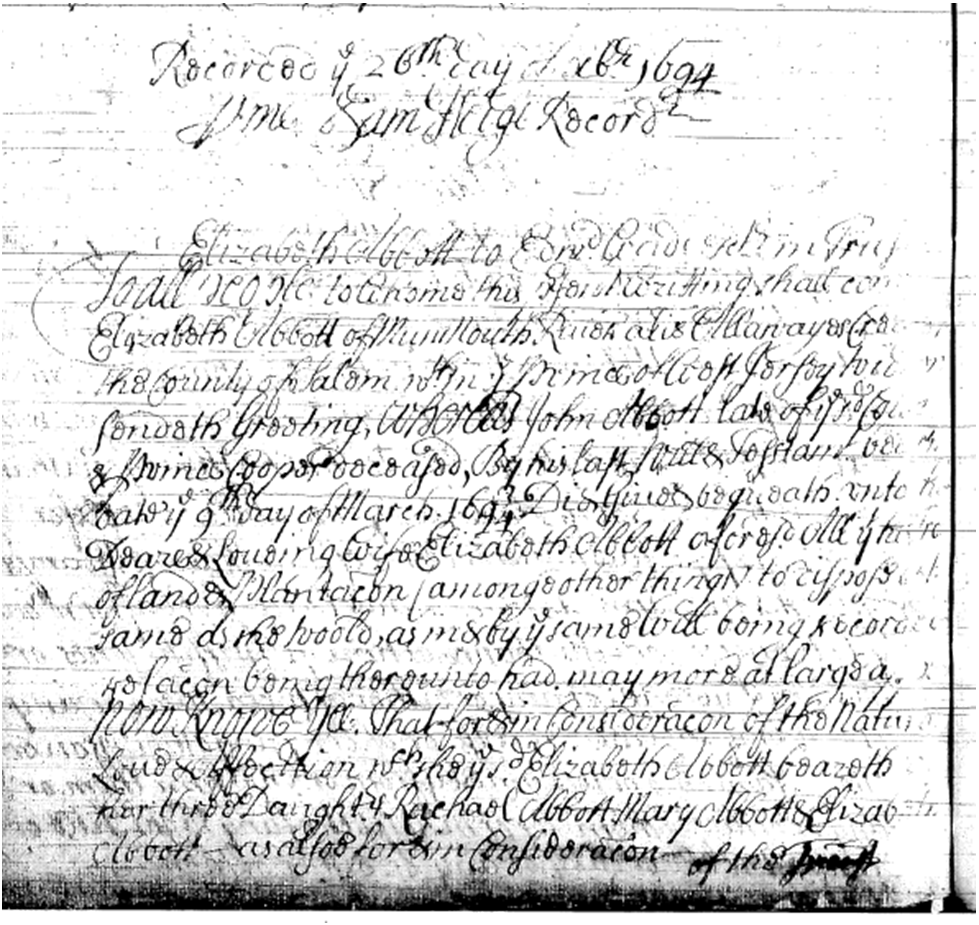 Recorded ye 26th day of xbr 1694
P me Sam Hedge Recordr
Elizabeth Abbott to Edwd in Trus
To all People to whome this psent Writting shall com
Elizabeth Abbott of Munmouth River alis Allawayes Cree
the County of Salem wthin ye Prince of West Jersey wid
sendeth Greeting, Whereas John Abbott late of ye sd
& Prince Cooper deceased, By his last Will & Testam
date ye 9th day of March 169 Did Give & bequeath unto
Deare & Loveing Wife Elizabeth Abbott aforesd All y
of land & Plantacon (amonge other things) to dispose
same as she woold, as in & by ye same Will being Recorded
relacon being thereunto had may more at large a
Now Knowe Yee. That for & in Consideracon of the Natu
Love & Affection wch she ye sd Elizabeth Abbott beareth
her three Daughtrs Rachael Abbott Mary Abbott & Elizab
Abbott as alsoe for & in Consideracon of the